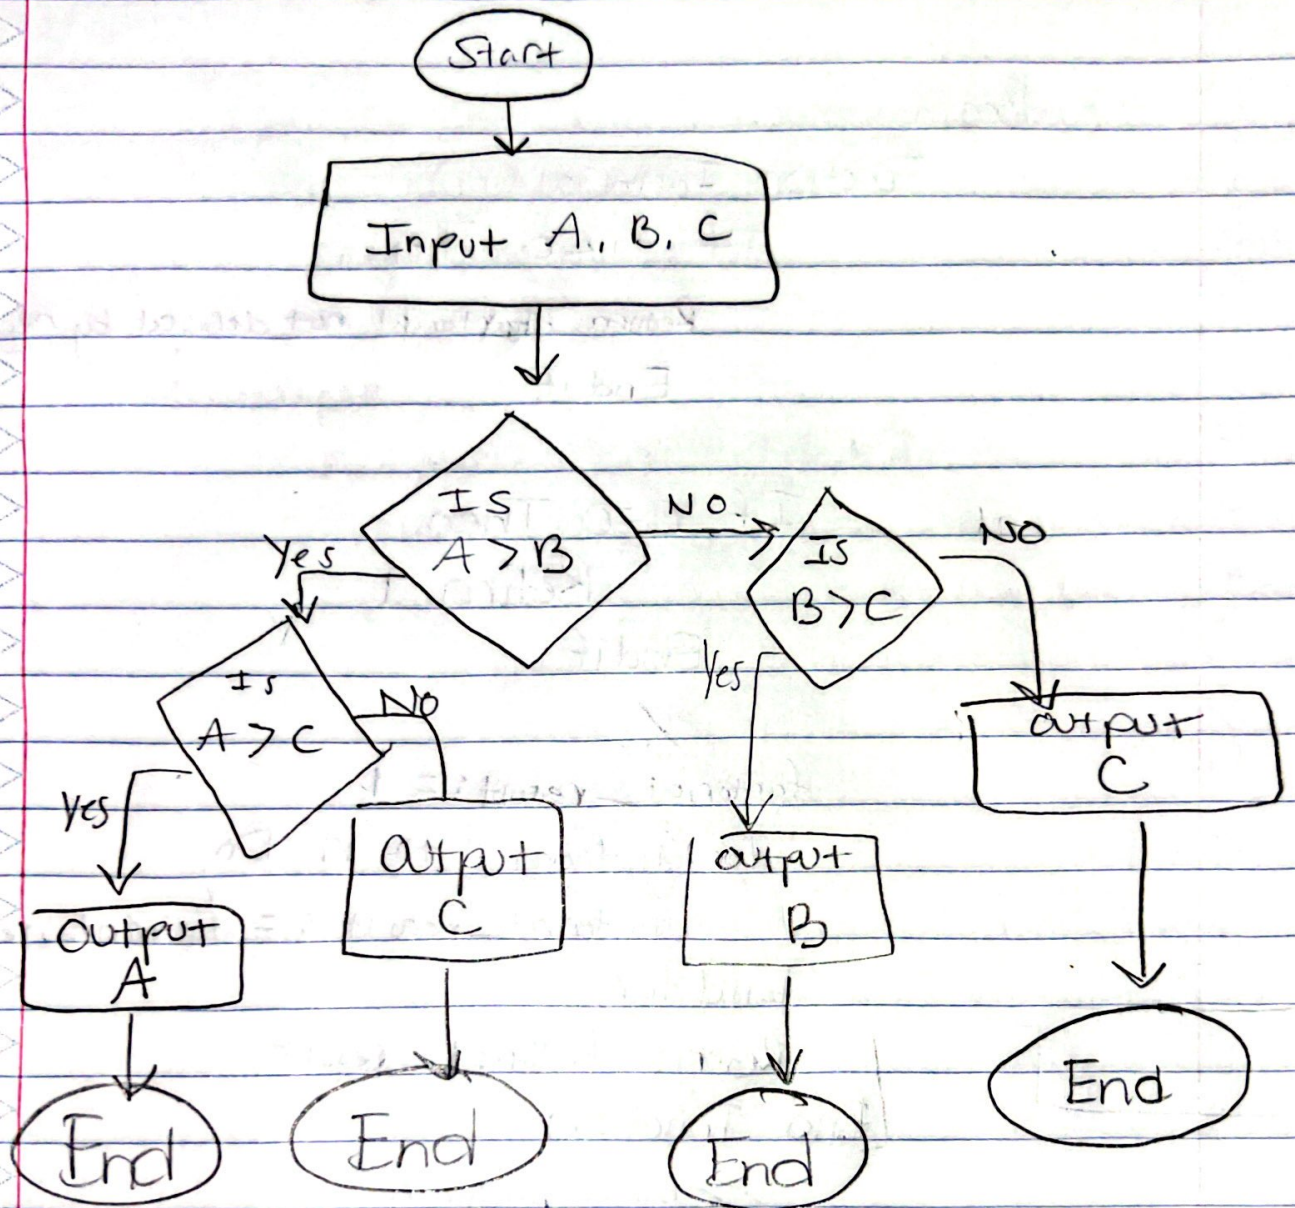 Start
Input A, B, C
Is
A > B
Yes
NO
Is
B > C
NO
Yes
Is
A > C
NO
Yes
Output
C
Output
C
Output
B
Output
A
End
End
End
End